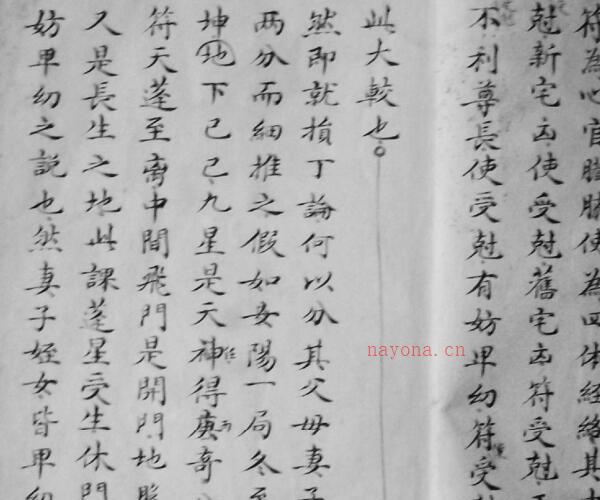 符為心官臟腑使為四体經絡其
尅新宅凶使受尅舊宅凶符受尅
不利尊長使受尅有妨卑幼符受
此大較也
然即就損丁論何以分其父母妻子
两分而細推之假如女陽一局冬至
坤地下己己九星是天神得庚奇
符天蓬至离中間飛門是開門地
又是長生之地此課蓬星受生休門
妨卑幼之説也然妻子姪女皆卑幼
nayona.cn